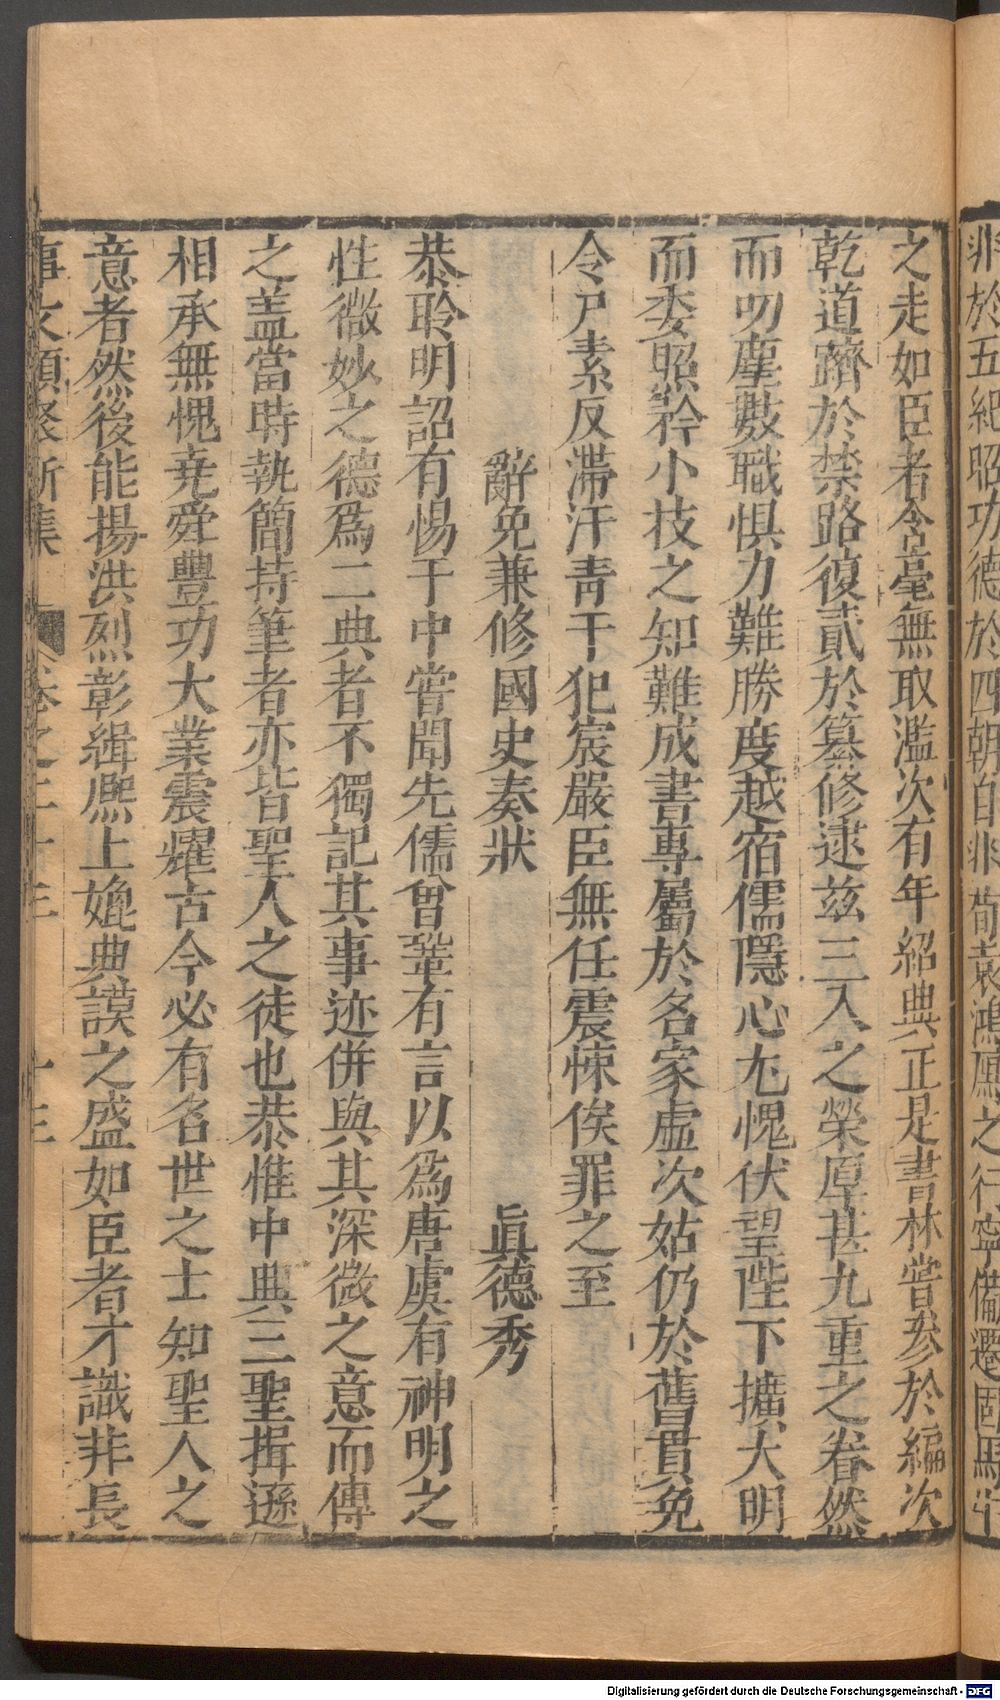 非於五紀昭功德於四朝自非荀袁鴻鴈之行寧備遷固馬牛
之走如臣者含毫無取濫次有年紹典正是書林嘗參於編次
乾道躋於禁路復貳於纂修逮茲三入之榮厚甚九重之眷然
而叨塵數職惧力難勝度越宿儒隱心尢愧伏望陛下擴大明
而委照矜小技之知難成書專屬於名家虛次姑仍於舊貫免
令尸素反滯汗青干犯宸嚴臣無任震悚俟罪之至
辭免兼修國史奏狀 眞德秀
恭聆明詔有惕于中嘗聞先儒曾鞏有言以爲唐虞有神明之
性微妙之德爲二典者不獨記其事迹併與其深微之意而傳
之盖當時執簡持筆者亦皆聖人之徒也恭惟中典三聖揖遜
相承無愧堯舜豐功大業震耀古今必有名世之士知聖人之
意者然後能揚洪烈彰緝熈上媲典謨之盛如臣者才識非長
事文類聚新集 卷之三十三 十三
Digitalisierung gefördert durch die Deutsche Forschungsgemeinschaft - DFG